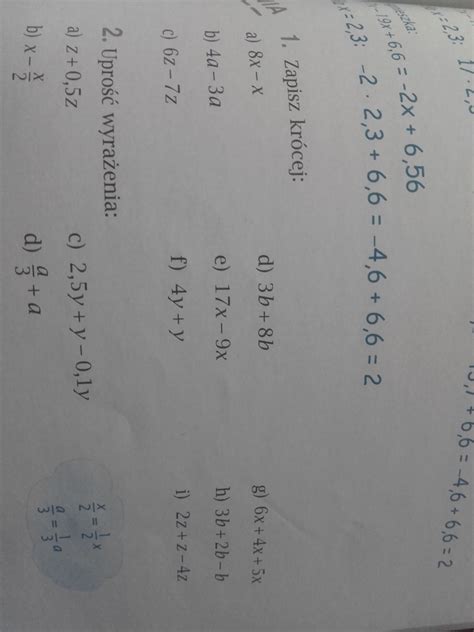 x = 2,3:
+ 6,6 = -4,6 + 6,6 = 2
19x + 6,6 = -2x + 6,56
x = 2,3: -2 · 2,3 + 6,6 = -4,6 + 6,6 = 2
1. Zapisz krócej:
a) 8x - x d) 3b + 8b g) 6x + 4x + 5x
b) 4a - 3a e) 17x - 9x h) 3b + 2b - b
c) 6z - 7z f) 4y + y i) 2z + z - 4z
2. Uprość wyrażenia:
a) z + 0,5z c) 2,5y + y - 0,1y
b) x - x/2 d) a/3 + a
x/2 = 1/2 x
a/3 = 1/3 a